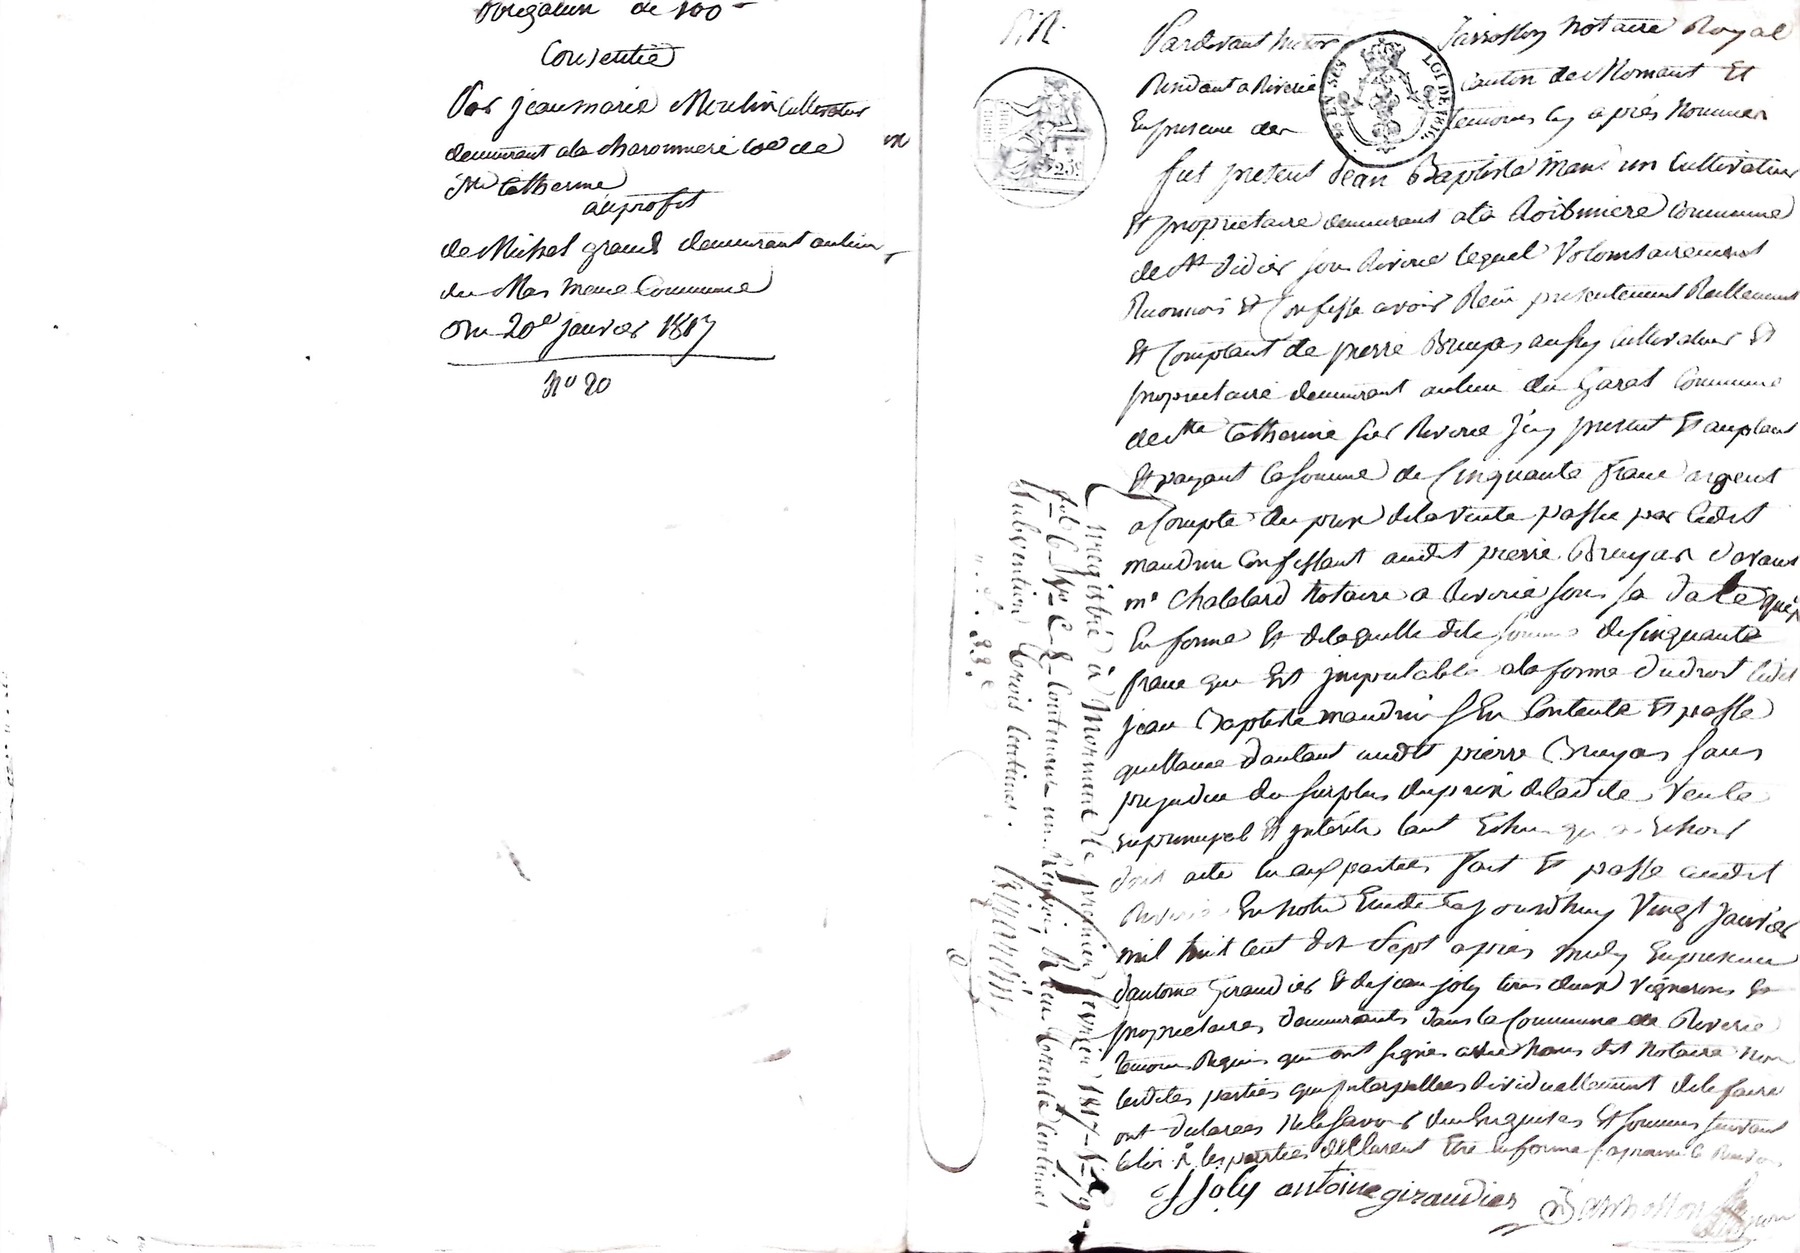 obligation de 100
Consentie
Par jean marie Moulin Cultivateur
demeurant ala charonniere coe de
Ste Catherine
au profit
de Michel grand demeurant au lieu
du Mas meme Commune
Du 20e janvier 1817
No 20
P. R.
Pardevant Notaire Royal
Residant a Riverie Canton de Mornant Et
En presence des temoins cy après Nommés
LOI DE 1816
25c
fut present Jean Baptiste un Cultivateur
Et proprietaire demeurant ala Commune
de St didier sous Riverie lequel Volontairement
Reconnois Et Confesse avoir Recu presentement Reellement
Et Comptant de pierre Bruyas aussy Cultivateur Et
proprietaire demeurant au lieu du Garat Commune
de Ste Catherine sur Riverie Jcy present Et acceptant
Et payant la somme de Cinquante franc argent
a Compte du prix dela Vente passee par ledit
maudrin Confessant audit pierre Bruyas davant
me Chalelard Notaire a Riverie sous sa date
En forme Et de laquelle dite somme de Cinquante
franc qui Est jmputable ala forme du droit ledit
jean Baptiste maudrin sEn Contente Et passe
quittance dautant audit pierre Bruyas sans
prejudice du surplus du prix de ladite Vente
en principal Et jnterêts tant Echus qu a Echoir
dont acte lu aux parties fait Et passé audit
Riverie En notre Etude cejourdhuy Vingt Janvier
mil huit cent dix Sept après midy En presence
dantoine Giraudier Et de jean joly tous deux Vignerons Et
proprietaires demeurants dans la Commune de Riverie
temoins Requis qui ont signés avec nous dit Notaire non
lesdites parties qui jnterpellees dividuellement de le faire
ont declarees ne le savoir de ce Enquises Et sommes suivant
la loi les parties declarent Etre
J Joly antoine giraudier
Enregistré à Mornant le premier fevrier 1817
fol 6 Contenant un Renvoi, Recu trente Centimes
Subvention trois Centimes.
33c